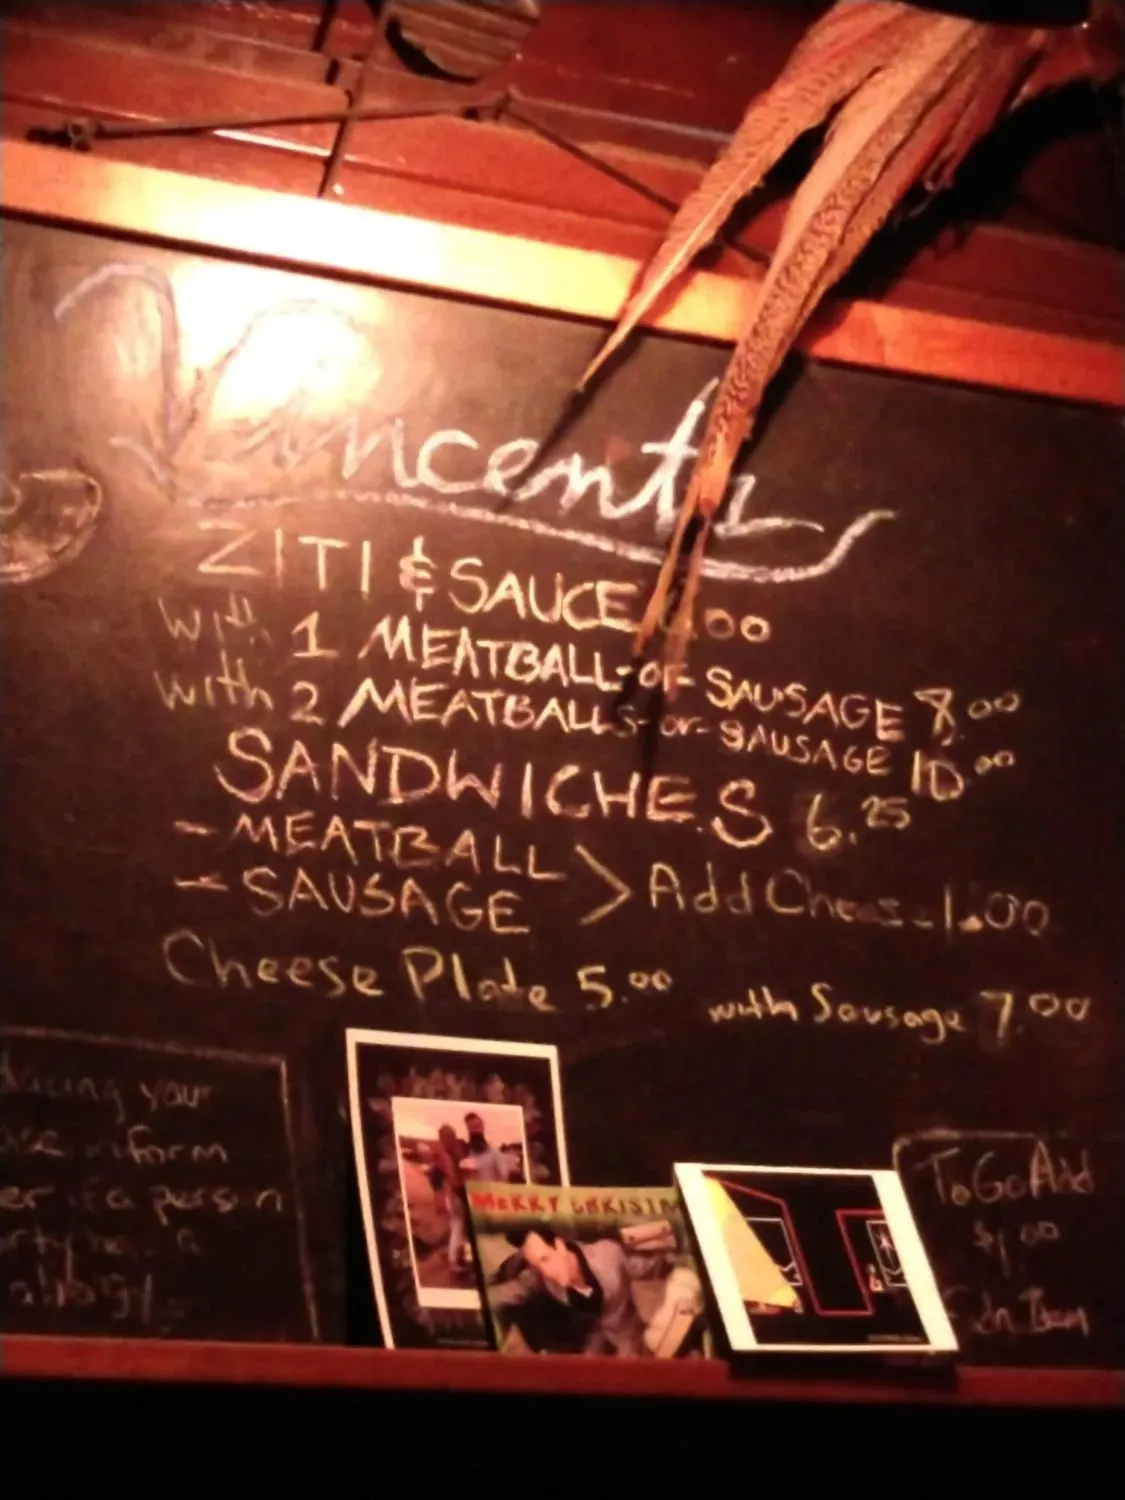 Vincent's
ZITI & SAUCE .00
with 1 MEATBALL-or SAUSAGE 8.00
with 2 MEATBALLS-or-SAUSAGE 10.00
SANDWICHES 6.25
- MEATBALL
- SAUSAGE > Add Cheese 1.00
Cheese Plate 5.00 with Sausage 7.00
your
inform
if a person
a
allergy
MERRY CHRISTM
To Go Add
$1.00
Item